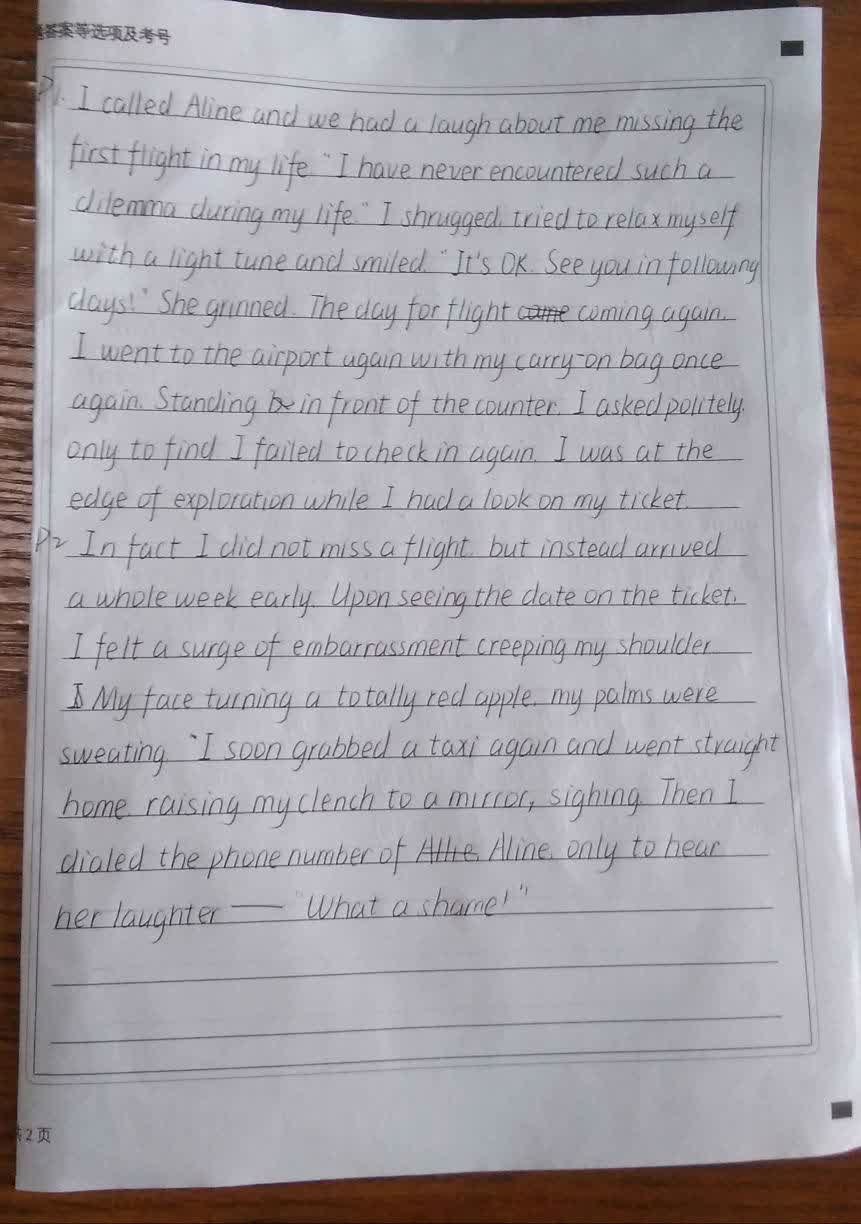 答案等选项及考号
P1. I called Aline and we had a laugh about me missing the
first flight in my life. "I have never encountered such a
dilemma during my life." I shrugged, tried to relax myself
with a light tune and smiled. "It's OK. See you in following
days!" She grinned. The day for flight came coming again.
I went to the airport again with my carry-on bag once
again. Standing be in front of the counter, I asked politely,
only to find I failed to check in again. I was at the
edge of exploration while I had a look on my ticket.
P2 In fact I did not miss a flight, but instead arrived
a whole week early. Upon seeing the date on the ticket,
I felt a surge of embarrassment creeping my shoulder
I My face turning a totally red apple, my palms were
sweating. "I soon grabbed a taxi again and went straight
home, raising my clench to a mirror, sighing. Then I
dialed the phone number of Aline, only to hear
her laughter — "What a shame!"
2页